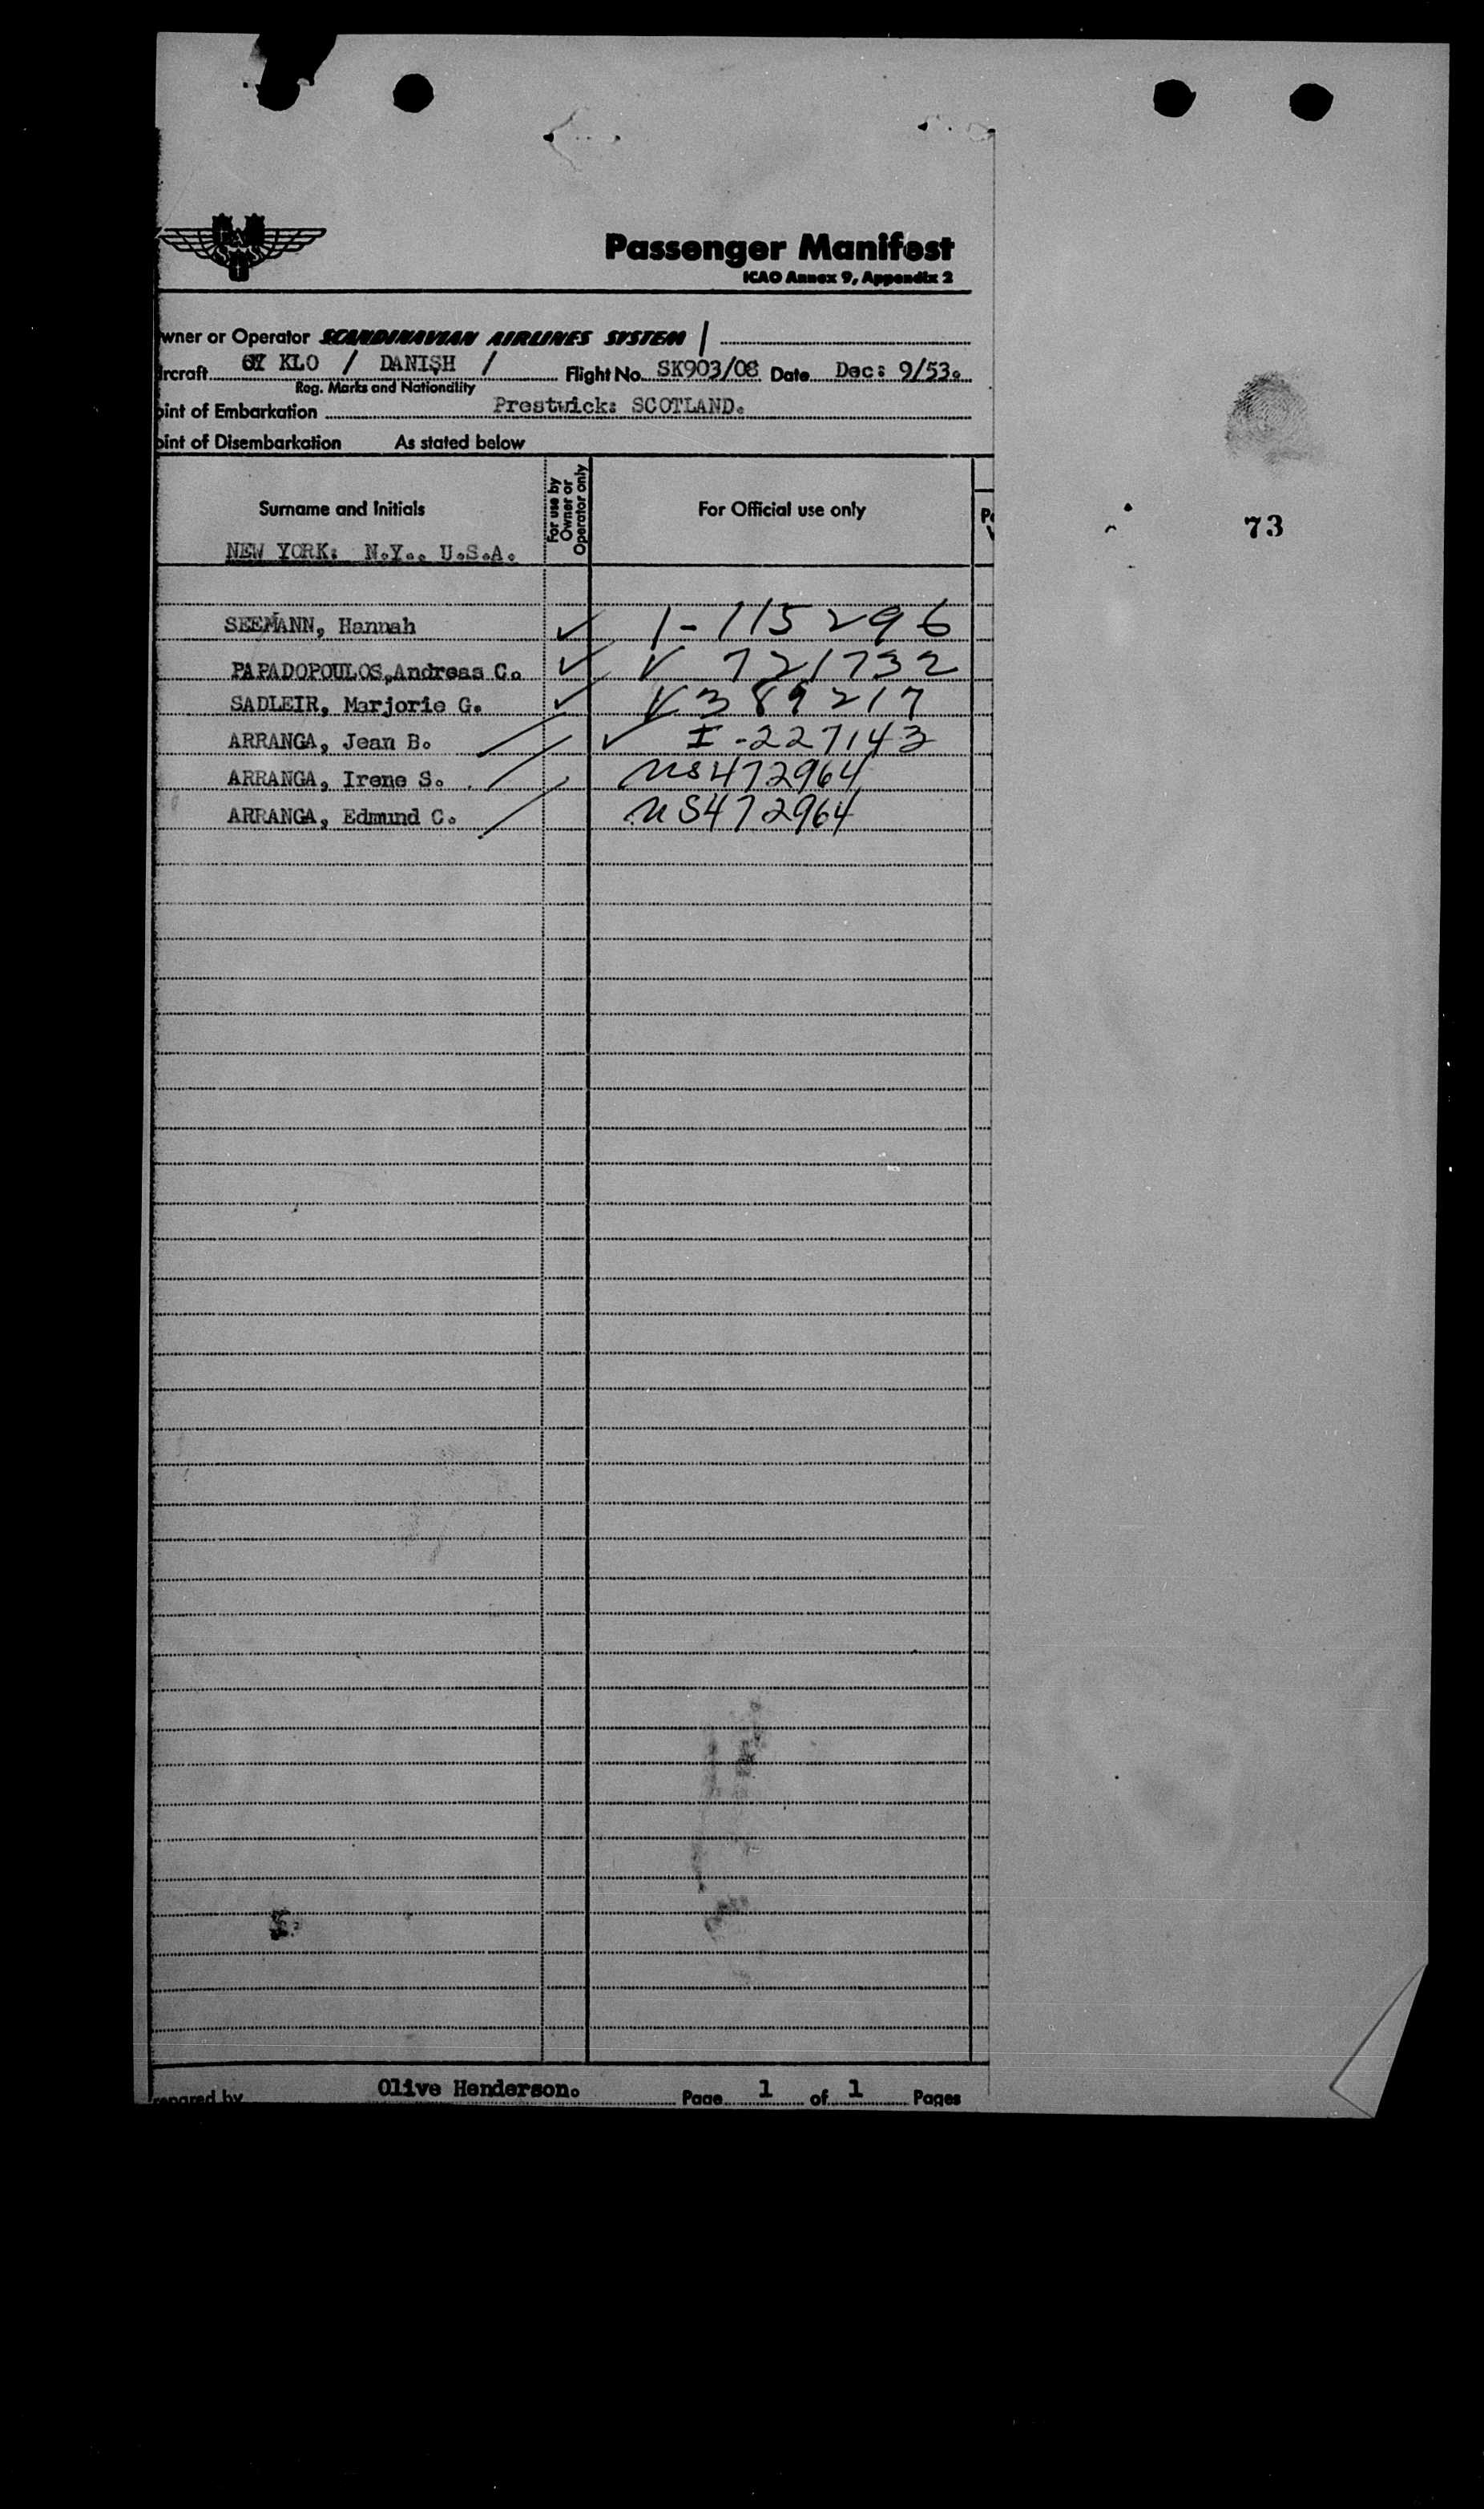 Passenger Manifest
ICAO Annex 9, Appendix 2
wner or Operator SCANDINAVIAN AIRLINES SYSTEM /
ircraft OY KLO / DANISH / Flight No. SK903/08 Date Dec: 9/53.
Reg. Marks and Nationality
oint of Embarkation Prestwick: SCOTLAND.
oint of Disembarkation As stated below
Surname and Initials
For use by
Owner or
Operator only
For Official use only
73
NEW YORK: N.Y.. U.S.A.
SEEMANN, Hannah ✓ 1-115296
PAPADOPOULOS,Andreas C. ✓ V 721732
SADLEIR, Marjorie G. ✓ V389217
ARRANGA, Jean B. ✓ I-227143
ARRANGA, Irene S. US472964
ARRANGA, Edmund C. US472964
repared by Olive Henderson. Page 1 of 1 Pages